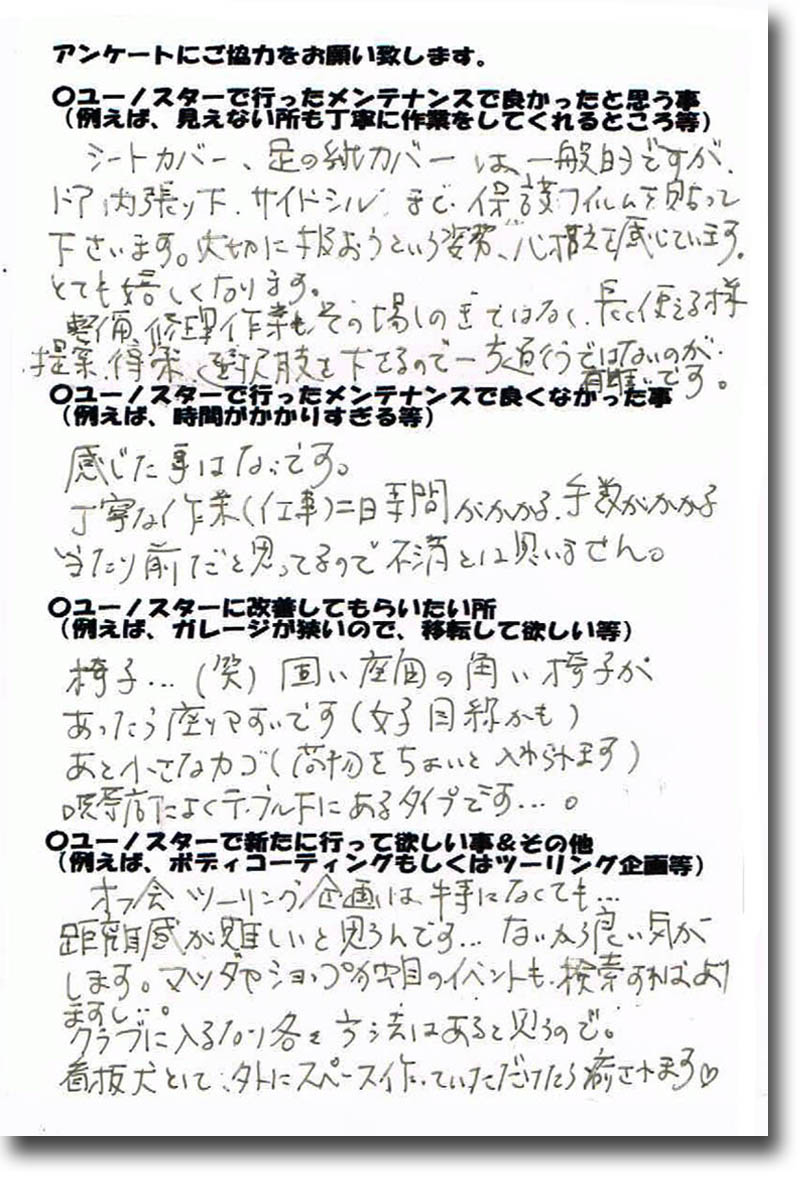 アンケートにご協力をお願い致します。
○ユーノスターで行ったメンテナンスで良かったと思う事
（例えば、見えない所も丁寧に作業をしてくれるところ等）
シートカバー、足の カバー は 一般的ですが、
ドア内張り下、サイドシル まで、保護フィルムを貼って
下さいます。大切に扱おうという姿勢、心構えを感じています。
とても嬉しくなります。
整備、修理作業も その場しのぎではなく、長く使える様
提案、 選択肢を下さるので一方通行ではないのが
有難いです。
○ユーノスターで行ったメンテナンスで良くなかった事
（例えば、時間がかかりすぎる等）
感じた事はないです。
丁寧な作業（仕事）＝時間がかかる、手数がかかる
当たり前だと思ってるので不満とは思いません。
○ユーノスターに改善してもらいたい所
（例えば、ガレージが狭いので、移転して欲しい等）
椅子…（笑）固い座面の角い椅子が
あったら座りやすいです（女子目線かも）
あと小さなカゴ（荷物をちょいと入れられます）
喫茶店によくテーブル下にあるタイプです…。
○ユーノスターで新たに行って欲しい事＆その他
（例えば、ボディコーティングもしくはツーリング企画等）
オフ会 ツーリング企画は、特になくても…
距離感が難しいと思うんです… ないから良い気が
します。マツダやショップ のイベントも、検索すればあり
ますし…。
クラブに入るなり各々方法はあると思うので。
看板犬として、外にスペース作っていただけたら癒されます♡